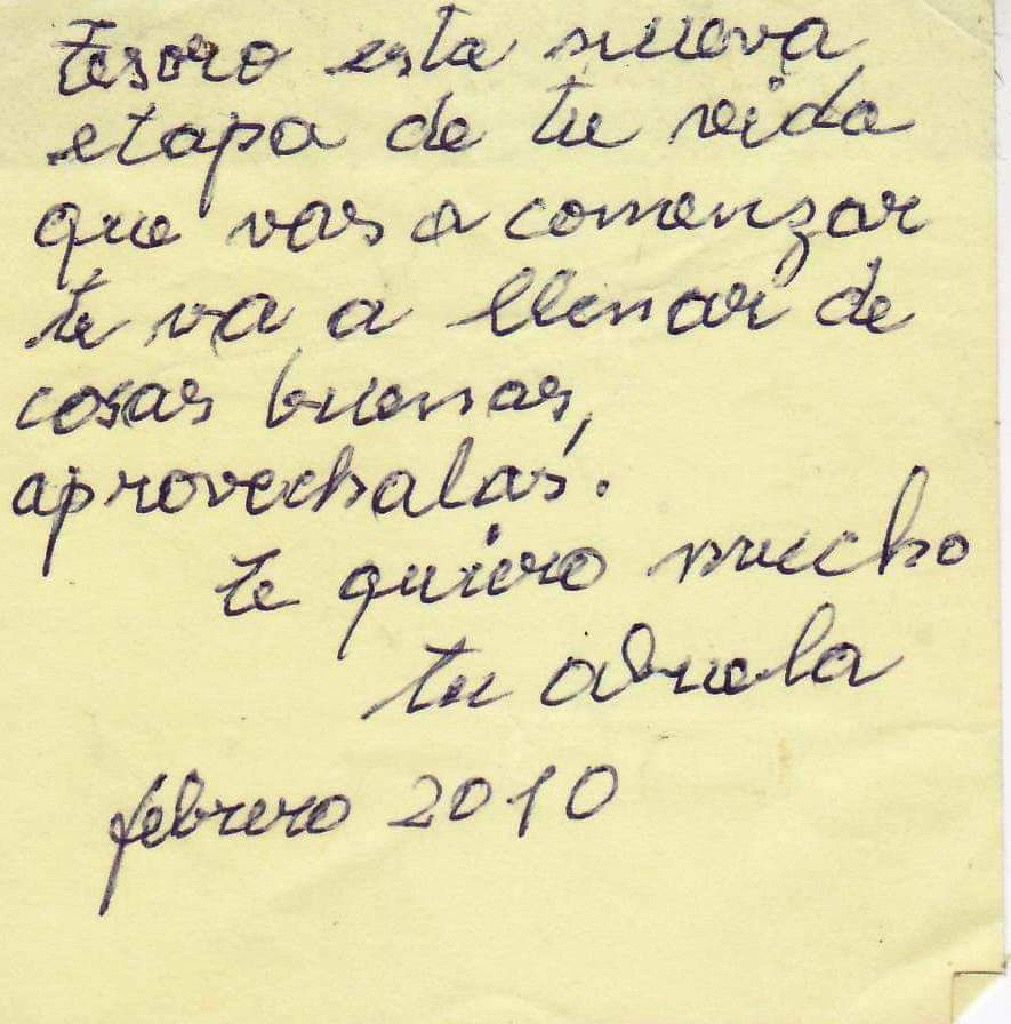 Tesoro esta nueva
etapa de tu vida
que vas a comenzar
te va a llenar de
cosas buenas,
aprovechalas.
te quiero mucho
tu abuela
febrero 2010